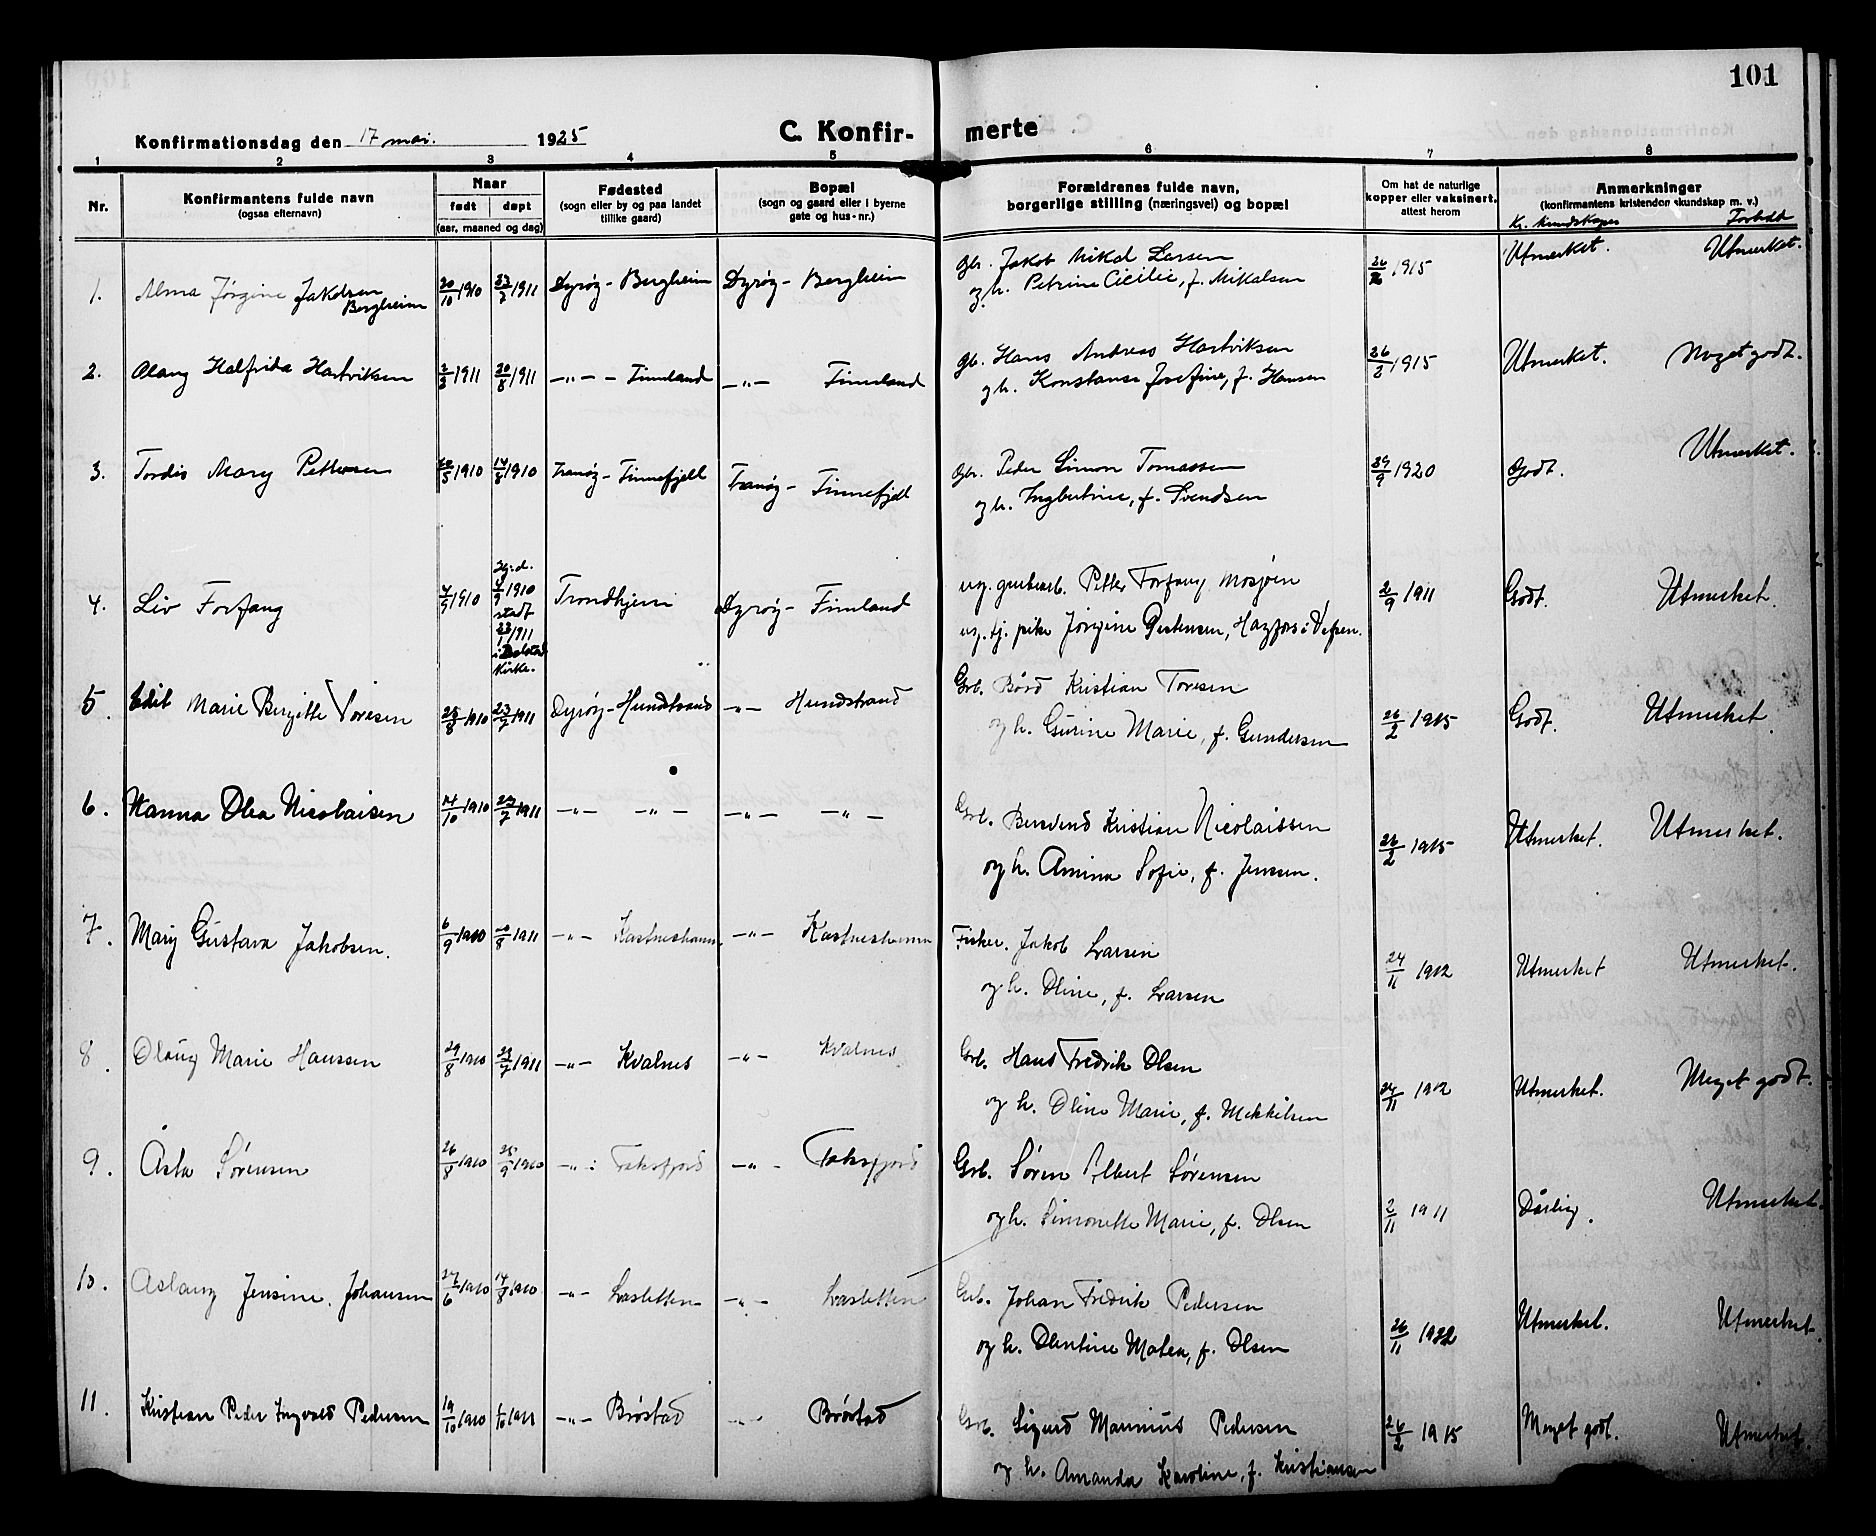 101
Konfirmationsdag den 17 mai. 1925
C. Konfir-
merte
1 2 3 4 5 6 7 8
Nr.
Konfirmantens fulde navn
(ogsaa efternavn)
Naar
født døpt
(aar, maaned og dag)
Fødested
(sogn eller by og paa landet
tillike gaard)
Bopæl
(sogn og gaard eller i byerne
gate og hus-nr.)
Forældrenes fulde navn,
borgerlige stilling (næringsvei) og bopæl
Om hat de naturlige
kopper eller vaksinert,
attest herom
Anmerkninger
(konfirmantens kristendomskundskap m. v.)
Kr. kundskaper Forhold
1. Alma Jørgine Jakobsen 20/10 1910 23/7 1911 Dyrøy - Bergheim Dyrøy - Bergheim gbr. Jakob Mikal Larsen 26/2 1915 Utmerket. Utmerket.
Bergheim og h. Petrine Cicilie, f. Mikalsen
2. Olaug Halfrida Hartviksen 2/2 1911 20/8 1911 -"- - Finnland -"- Finnland gb. Hans Andreas Hartviksen 26/2 1915 Utmerket. Meget godt.
og h. Konstanse Josefine, f. Hansen
3. Tordis Mary Pettersen 20/5 1910 14/8 1910 Tranøy - Finnefjell Tranøy - Finnefjell gbr. Peder Simon Tomassen 29/9 1920 Godt. Utmerket.
og h. Ingbertine, f. Svendsen
4. Liv Forfang 4/9 1910 Hj.d. 4/9 1910 stadf. 23/1 1911 i Dolstad Kirke. Trondhjem Dyrøy - Finnland ug. grubearb. Petter Forfang Mosjøen 2/9 1911 Godt. Utmerket.
ug. tj. pike Jørgine Pedersen, Hagfors i Vefsen.
5. Edit Marie Bergitte Toresen 25/8 1910 23/7 1911 Dyrøy - Hundstrand -"- Hundstrand Grb. Bård Kristian Toresen 26/2 1915 Godt. Utmerket.
og h. Gurine Marie, f. Gundersen
6. Hanna Olea Nicolaisen 14/10 1910 23/7 1911 -"- -"- -"- -"- Grb. Berdvend Kristian Nicolaissen 26/2 1915 Utmerket. Utmerket.
og h. Amina Sofie, f. Jensen.
7. Mary Gustava Jakobsen. 6/9 1910 20/8 1911 -"- Kastneshamn -"- Kastneshamn Fisker. Jakob Larsen 24/11 1912 Utmerket Utmerket.
og h. Oline, f. Larsen
8. Olaug Marie Hanssen 29/8 1910 23/7 1911 -"- Kvalnes -"- Kvalnes Grb. Hans Fredrik Olsen 24/11 1912 Utmerket. Meget godt.
og h. Oline Marie, f. Mekkelsen
9. Åsta Sørensen 26/8 1910 25/9 1910 -"- Faksfjord -"- Faksfjord Grb. Søren Albert Sørensen 2/11 1911 Dårlig. Utmerket.
og h. Simonette Marie, f. Olsen
10. Aslaug Jensine. Johansen 27/6 1910 14/8 1910 -"- Lasletten -"- Lasletten Grb. Johan Fredrik Pedersen 26/11 1922 Utmerket. Utmerket.
og h. Olentine Matea, f. Olsen
11. Kristian Peder Ingvald Pedersen 19/10 1910 1/10 1911 -"- Brøstad -"- Brøstad Grb. Sigurd Marinius Pedersen 26/2 1915 Meget godt. Utmerket.
og h. Amanda Karoline, f. Kristiansen